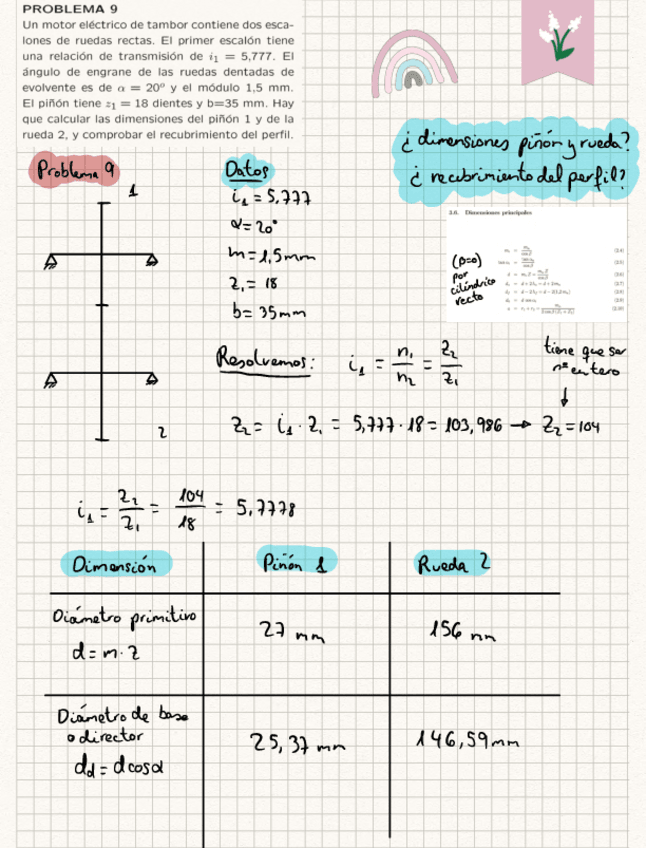 PROBLEMA 9
Un motor eléctrico de tambor contiene dos esca-
lones de ruedas rectas. El primer escalón tiene
una relación de transmisión de i₁ = 5,777. El
ángulo de engrane de las ruedas dentadas de
evolvente es de α = 20º y el módulo 1,5 mm.
El piñón tiene z₁ = 18 dientes y b=35 mm. Hay
que calcular las dimensiones del piñón 1 y de la
rueda 2, y comprobar el recubrimiento del perfil.
¿dimensiones piñón y rueda?
¿recubrimiento del perfil?
Problema 9
1
2
Datos
i₁ = 5,777
α = 20°
m = 1,5mm
z₁ = 18
b = 35mm
2.6. Dimensiones principales
(β=0)
por
cilíndrico
recto
Resolvemos: i₁ = n₁/n₂ = z₂/z₁
tiene que ser
nº entero
↓
z₂ = i₁ · z₁ = 5,777 · 18 = 103,986 → z₂ = 104
i₁ = z₂/z₁ = 104/18 = 5,7778
Dimensión Piñón 1 Rueda 2
Diámetro primitivo
d = m · z
27 mm 156 mm
Diámetro de base
o director
dd = d cosα
25,37 mm 146,59mm